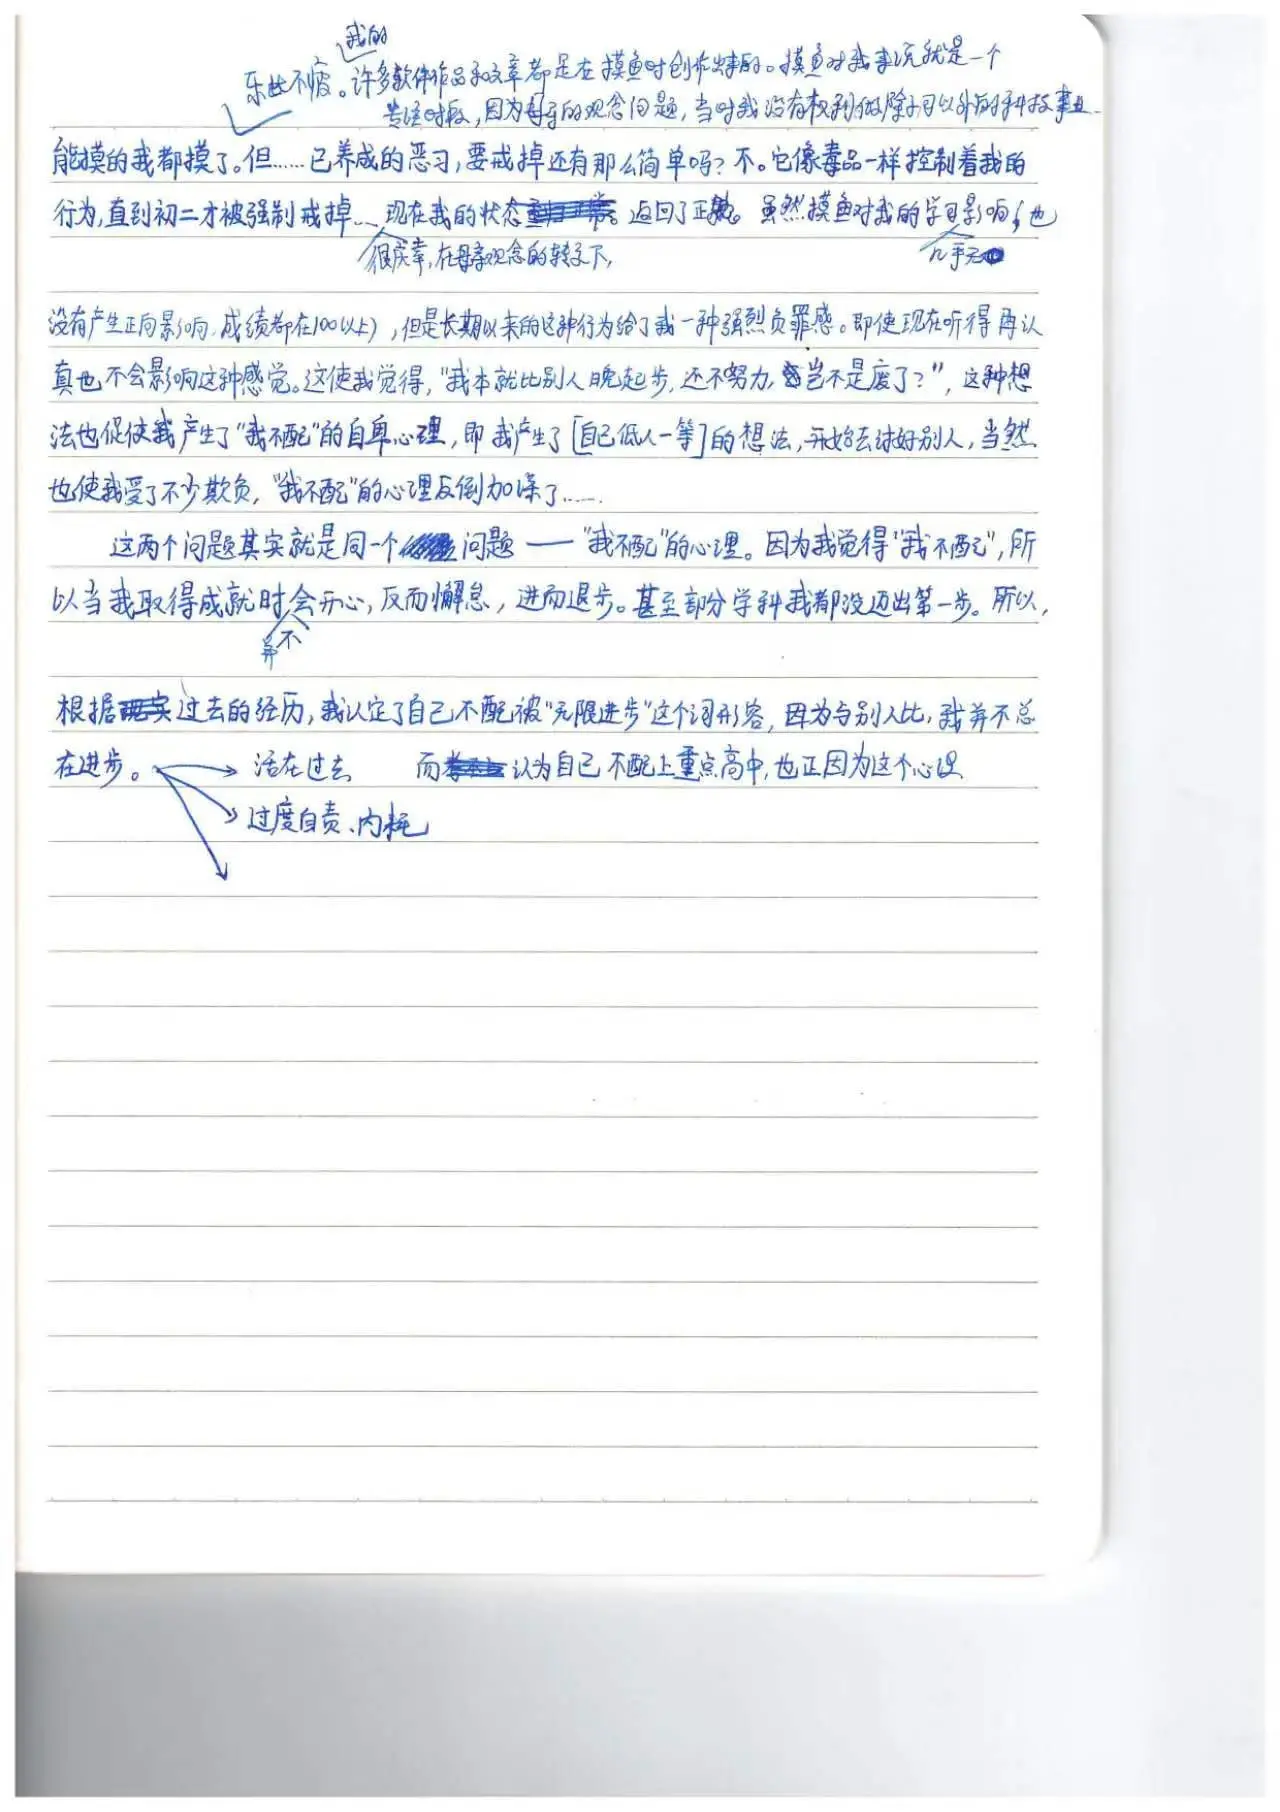 我的
乐此不疲。许多软件作品和文章都是在摸鱼时创作出来的。摸鱼对我来说就是一个
专注时段，因为母亲的观念问题，当时我没有权利做除学习以外的科技事业
能摸的我都摸了。但……已养成的恶习，要戒掉还有那么简单吗？不。它像毒品一样控制着我的
行为，直到初二才被强制戒掉…现在我的状态返回了正轨。虽然摸鱼对我的学习影响（也
很庆幸，在母亲观念的转变下，
几乎无
没有产生正向影响，成绩都在100以上），但是长期以来的这种行为给了我一种强烈负罪感。即使现在听得再认
真也不会影响这种感觉。这使我觉得，“我本就比别人晚起步，还不努力，岂不是废了？”，这种想
法也促使我产生了“我不配”的自卑心理，即我产生了[自己低人一等]的想法，开始去讨好别人，当然
也使我受了不少欺负，“我不配”的心理反倒加深了……
这两个问题其实就是同一个问题——“我不配”的心理。因为我觉得“我不配”，所
以当我取得成就时会开心，反而懈怠，进而退步。甚至部分学科我都没迈出第一步。所以，
并不
根据过去的经历，我认定了自己不配被“无限进步”这个词形容，因为与别人比，我并不总
在进步。 活在过去 而认为自己不配上重点高中，也正因为这个心理
过度自责、内耗